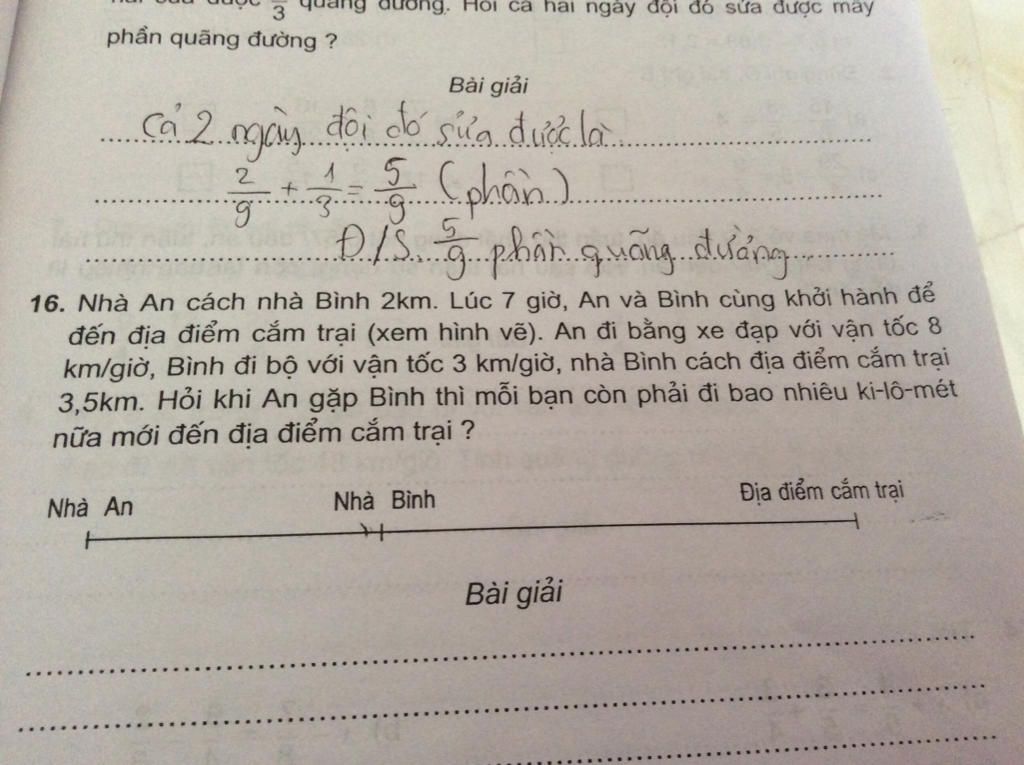 quãng đường. Hỏi cả hai ngày đội đó sửa được mấy
3
phần quãng đường ?
Bài giải
Cả 2 ngày đội đó sửa được là
2/9 + 1/3 = 5/9 (phần)
Đ/S. 5/9 phần quãng đường
16. Nhà An cách nhà Bình 2km. Lúc 7 giờ, An và Bình cùng khởi hành để
đến địa điểm cắm trại (xem hình vẽ). An đi bằng xe đạp với vận tốc 8
km/giờ, Bình đi bộ với vận tốc 3 km/giờ, nhà Bình cách địa điểm cắm trại
3,5km. Hỏi khi An gặp Bình thì mỗi bạn còn phải đi bao nhiêu ki-lô-mét
nữa mới đến địa điểm cắm trại ?
Nhà An Nhà Bình Địa điểm cắm trại
Bài giải